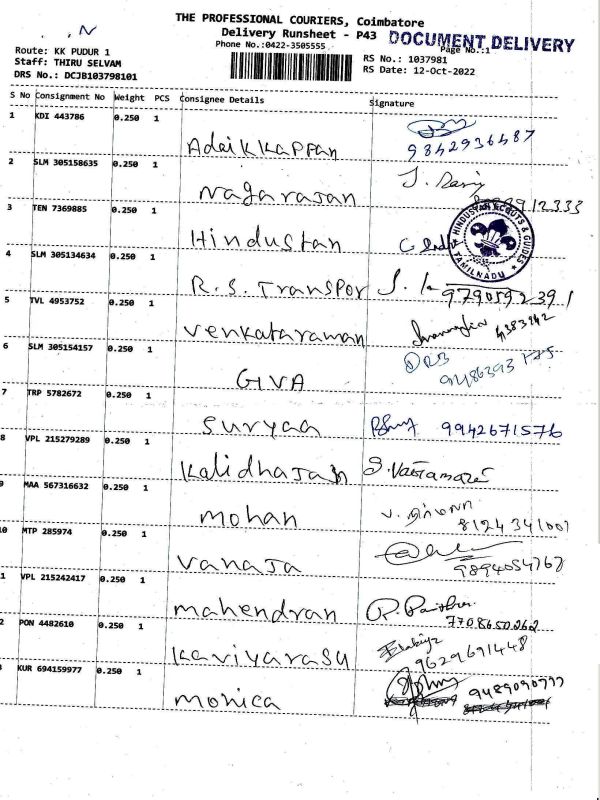 THE PROFESSIONAL COURIERS, Coimbatore
Delivery Runsheet - P43
DOCUMENT DELIVERY
Phone No.:0422-3505555
Page No.:1
Route: KK PUDUR 1
RS No.: 1037981
Staff: THIRU SELVAM
RS Date: 12-Oct-2022
DRS No.: DCJB103798101
S No Consignment No Weight PCS Consignee Details Signature
1 KDI 443786 0.250 1
Adaikkappan 9842936487
2 SLM 305158635 0.250 1
Nagarajan
3 TEN 7369885 0.250 1
Hindustan
HINDUSTAN SCOUTS & GUIDES
TAMILNADU
4 SLM 305134634 0.250 1
R.S. Transpor
9790592391
5 TVL 4953752 0.250 1
Venkataraman
6 SLM 305154157 0.250 1
GIVA
7 TRP 5782672 0.250 1
Suryaa 9942671576
8 VPL 215279289 0.250 1
Kalidhasan
9 MAA 567316632 0.250 1
Mohan
8124341001
0 MTP 285974 0.250 1
Vanaja
9894054762
1 VPL 215242417 0.250 1
Mahendran
7708650262
2 PON 4482610 0.250 1
Kaviyarasu 9629691448
KUR 694159977 0.250 1
Monica 9489090777